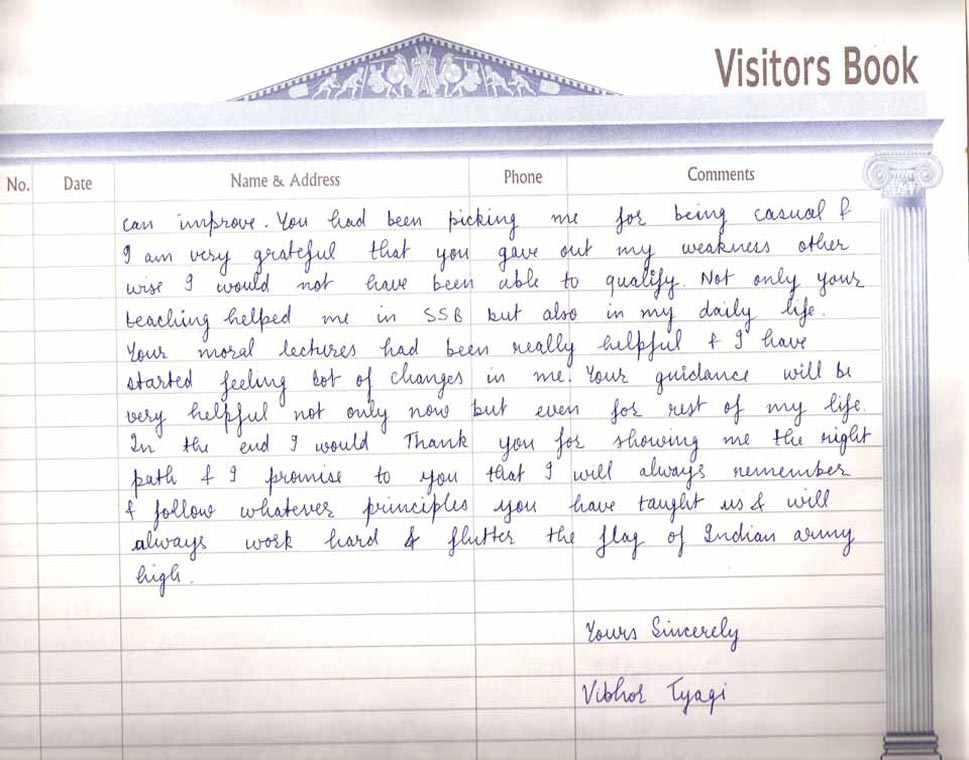 Visitors Book
No. Date Name & Address Phone Comments
can improve. You had been picking me for being casual &
I am very grateful that you gave out my weakness other
wise I would not have been able to qualify. Not only your
teaching helped me in SSB but also in my daily life.
Your moral lectures had been really helpful & I have
started feeling lot of changes in me. Your guidance will be
very helpful not only now but even for rest of my life.
In the end I would Thank you for showing me the right
path & I promise to you that I will always remember
& follow whatever principles you have taught us & will
always work hard & flutter the flag of Indian army
high.
Yours Sincerely
Vibhor Tyagi